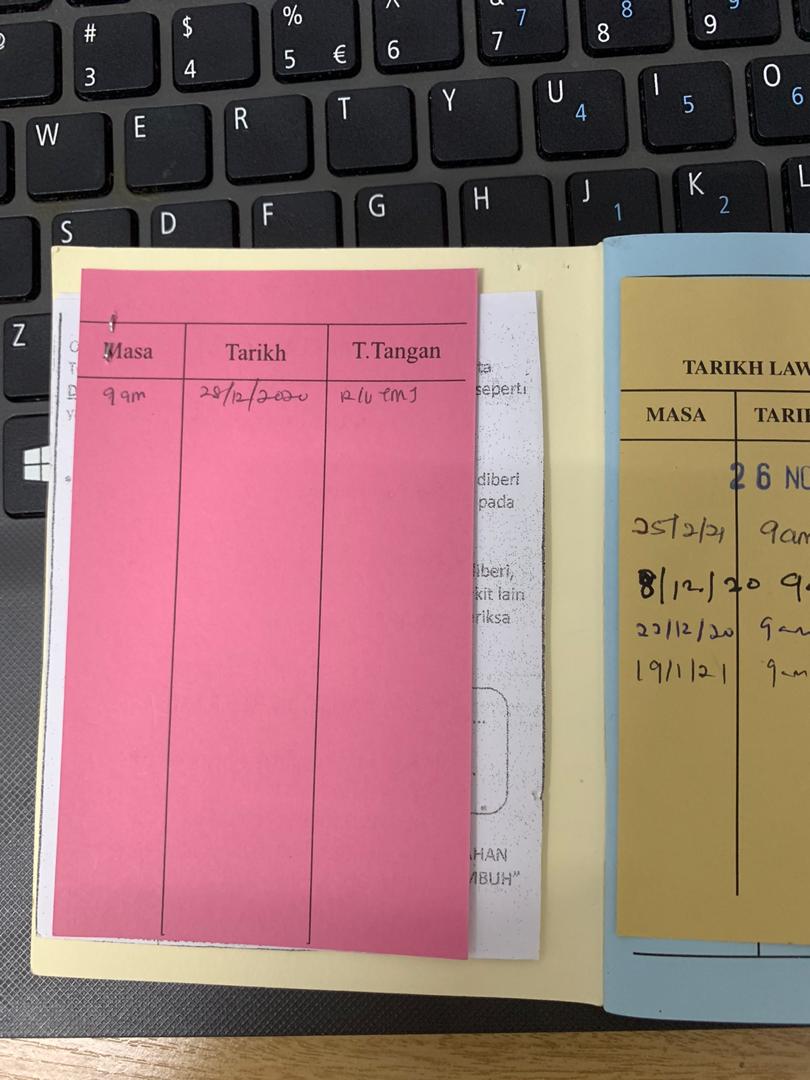 # $ % € 7 8 9
3 4 5 6 7 8 9
W E R T Y U 4 I 5 O 6
S D F G H J 1 K 2 L
Z
Masa Tarikh T.Tangan
9 am 28/12/2020
seperti
diberi
pada
iberi,
kit lain
riksa
AHAN
MBUH"
TARIKH LAW
MASA TARIK
26 NO
25/2/21 9am
8/12/20
22/12/20 9am
19/1/21 9am